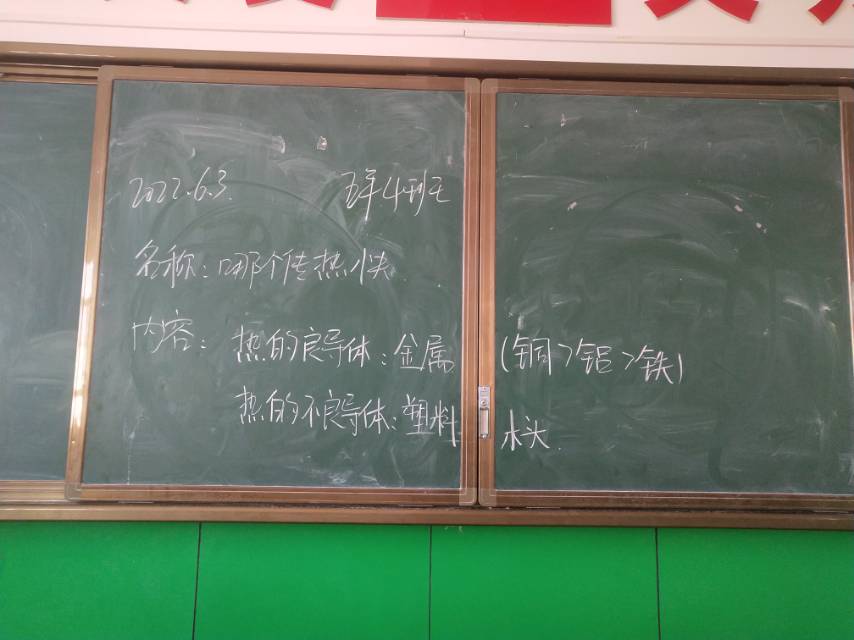 2022.6.3. 五年4班
名称:哪个传热快
内容: 热的良导体:金属 (铜>铝>铁)
热的不良导体:塑料 木头.